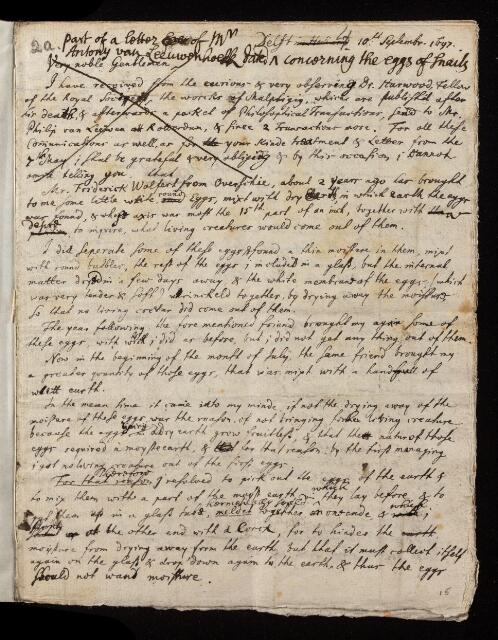 20. part of a letter of Mr
Antony van Leeuwenhoek Dat. Delft 10th September 1697.
concerning the eggs of Snails
Very noble Gentlemen
I have received from the curious & very observing Dr. Hurwood, Fellow
of the Royal Society, the works of Malphigii, which are publish't after
his death, & afterwards a parkel of Philosophical Transactions, send to Mr.
Philip van Leeuwen at Rotterdam, & since 2 Transactions more. For all these
Communications as well, as for your kinde treatment & Letter from the
7th May i shal be grateful & very obliging & by this occasion, i Cannot
more telling you that
Mr. Friderick Wolfert from Overschie, about 2 years ago has brought
to me some little white round Eggs, mixt with dry Earth in which earth the eggs
was found, & whose axis was most the 15th part of an inch, together with
desire to inquire, what living creatures would come out of them.
I did seperate some of these eggs & found a thin moisture in them, mixt
with round bubbles, the rest of the eggs i included in a glass, but the internal
matter dryed in a few days away, & the white membrane of the eggs, which
was very tender & soft, shrinckeld together, by drying away the moisture
so that no living cretur did come out of them.
The year following the fore mentioned friend brought my again some of
these eggs, with which i did as before, but i did not get any thing out of them
Now in the beginning of the month of July, the same friend brought my
a greater quantity off those eggs, that was mixt with a handfull of
earth.
In the mean time it came into my minde, if not the drying away of the
moisture of these eggs was the reason, of not bringing forth living creature
because the eggs in dry earth grow fruitless, & that the natur of those
eggs required a moysте earth, & for that reason, by the first managing
i got no living creature out of the first eggs.
Therefore I resolved to pick out the eggs of the earth &
to mix them with a part of the moyst earth in which they lay before, & to
put them up in a glass tube, melted together on one ende &
at the other end with a Corck, for to hinder the
moysture from drying away from the earth but that it must collect itself
again on the glass & drop down again to the earth, & thus the eggs
should not want moisture.